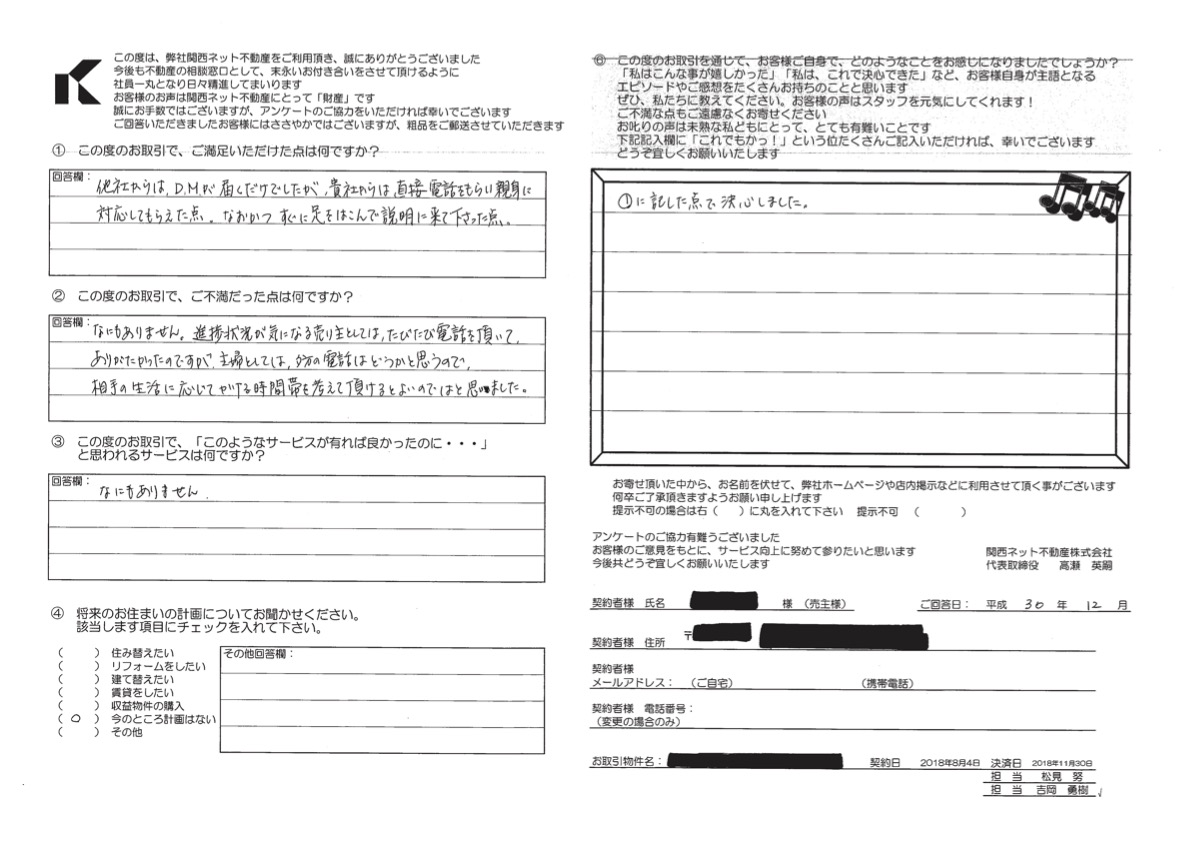 この度は、弊社関西ネット不動産をご利用頂き、誠にありがとうございました
今後も不動産の相談窓口として、末永いお付き合いをさせて頂けるように
社員一丸となり日々精進してまいります
お客様のお声は関西ネット不動産にとって「財産」です
誠にお手数ではございますが、アンケートのご協力をいただければ幸いでございます
ご回答いただきましたお客様にはささやかではございますが、粗品をご郵送させていただきます
① この度のお取引で、ご満足いただけた点は何ですか?
回答欄:
他社からは、D.Mが届くだけでしたが、貴社からは直接電話をもらい親身に
対応してもらえた点。なおかつ すぐに足をはこんで説明に来て下さった点。
② この度のお取引で、ご不満だった点は何ですか?
回答欄:
なにもありません。進捗状況が気になる売り主としては、たびたび電話を頂いて、
ありがたかったのですが、主婦としては、夕方の電話はどうかと思うので、
相手の生活に応じてかける時間帯を考えて頂けるとよいのではと思いました。
③ この度のお取引で、「このようなサービスが有れば良かったのに・・・」
と思われるサービスは何ですか?
回答欄:
なにもありません.
④ 将来のお住まいの計画についてお聞かせください。
該当します項目にチェックを入れて下さい。
( ) 住み替えたい
( ) リフォームをしたい
( ) 建て替えたい
( ) 賃貸をしたい
( ) 収益物件の購入
( ○ ) 今のところ計画はない
( ) その他
その他回答欄:
⑥ この度のお取引を通じて、お客様ご自身で、どのようなことをお感じになりましたでしょうか?
「私はこんな事が嬉しかった」「私は、これで決心できた」など、お客様自身が主語となる
エピソードやご感想をたくさんお持ちのことと思います
ぜひ、私たちに教えてください。お客様の声はスタッフを元気にしてくれます!
ご不満な点もご遠慮なくお寄せください
お叱りの声は未熟な私どもにとって、とても有難いことです
下記記入欄に「これでもかっ!」という位たくさんご記入いただければ、幸いでございます
どうぞ宜しくお願いいたします
①に記した点で決心しました。
お寄せ頂いた中から、お名前を伏せて、弊社ホームページや店内掲示などに利用させて頂く事がございます
何卒ご了承頂きますようお願い申し上げます
提示不可の場合は右( )に丸を入れて下さい 提示不可 ( )
アンケートのご協力有難うございました
お客様のご意見をもとに、サービス向上に努めて参りたいと思います
今後共どうぞ宜しくお願いいたします
関西ネット不動産株式会社
代表取締役 高瀬 英嗣
契約者様 氏名 様 (売主様) ご回答日: 平成 30 年 12 月
契約者様 住所 〒
契約者様
メールアドレス: (ご自宅) (携帯電話)
契約者様 電話番号:
(変更の場合のみ)
お取引物件名: 契約日 2018年8月4日 決済日 2018年11月30日
担 当 松見 努
担 当 吉岡 勇樹